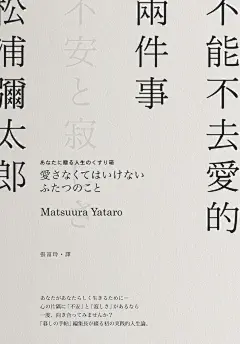 不能不去愛的
兩件事
不安と寂しさ
松浦彌太郎
あなたに贈る人生のくすり箱
愛さなくてはいけない
ふたつのこと
Matsuura Yataro
張富玲・譯
あなたがあなたらしく生きるために―
心の片隅に「不安」と「寂しさ」があるなら
一度、向き合ってみませんか？
「暮しの手帖」編集長が綴る初の実践的人生論。